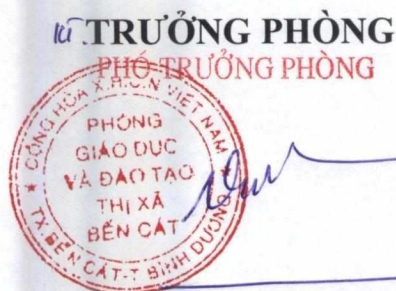 KT.TRƯỞNG PHÒNG
PHÓ TRƯỞNG PHÒNG
CỘNG HÒA X.H.C.N VIỆT NAM
PHÒNG
GIÁO DỤC
VÀ ĐÀO TẠO
THỊ XÃ
BẾN CÁT
★ TX.BẾN CÁT-T.BÌNH DƯƠNG ★